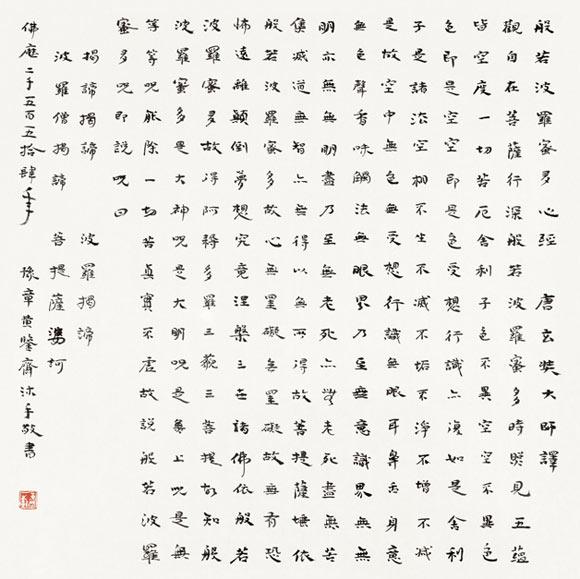 般若波羅蜜多心經 唐玄奘大師譯
觀自在菩薩行深般若波羅蜜多時照見五蘊
皆空度一切苦厄舍利子色不異空空不異色
色即是空空即是色受想行識亦復如是舍利
子是諸法空相不生不滅不垢不淨不增不減
是故空中無色無受想行識無眼耳鼻舌身意
無色聲香味觸法無眼界乃至無意識界無無
明亦無無明盡乃至無老死亦無老死盡無苦
集滅道無智亦無得以無所得故菩提薩埵依
般若波羅蜜多故心無罣礙無罣礙故無有恐
怖遠離顛倒夢想究竟涅槃三世諸佛依般若
波羅蜜多故得阿耨多羅三藐三菩提故知般
波羅蜜多是大神咒是大明咒是無上咒是無
等等咒能除一切苦真實不虛故說般若波羅
蜜多咒即說咒曰
揭諦揭諦 波羅揭諦
波羅僧揭諦 菩提薩婆訶
佛歷二千五百五拾肆年 豫章黃鑒齋沐手敬書